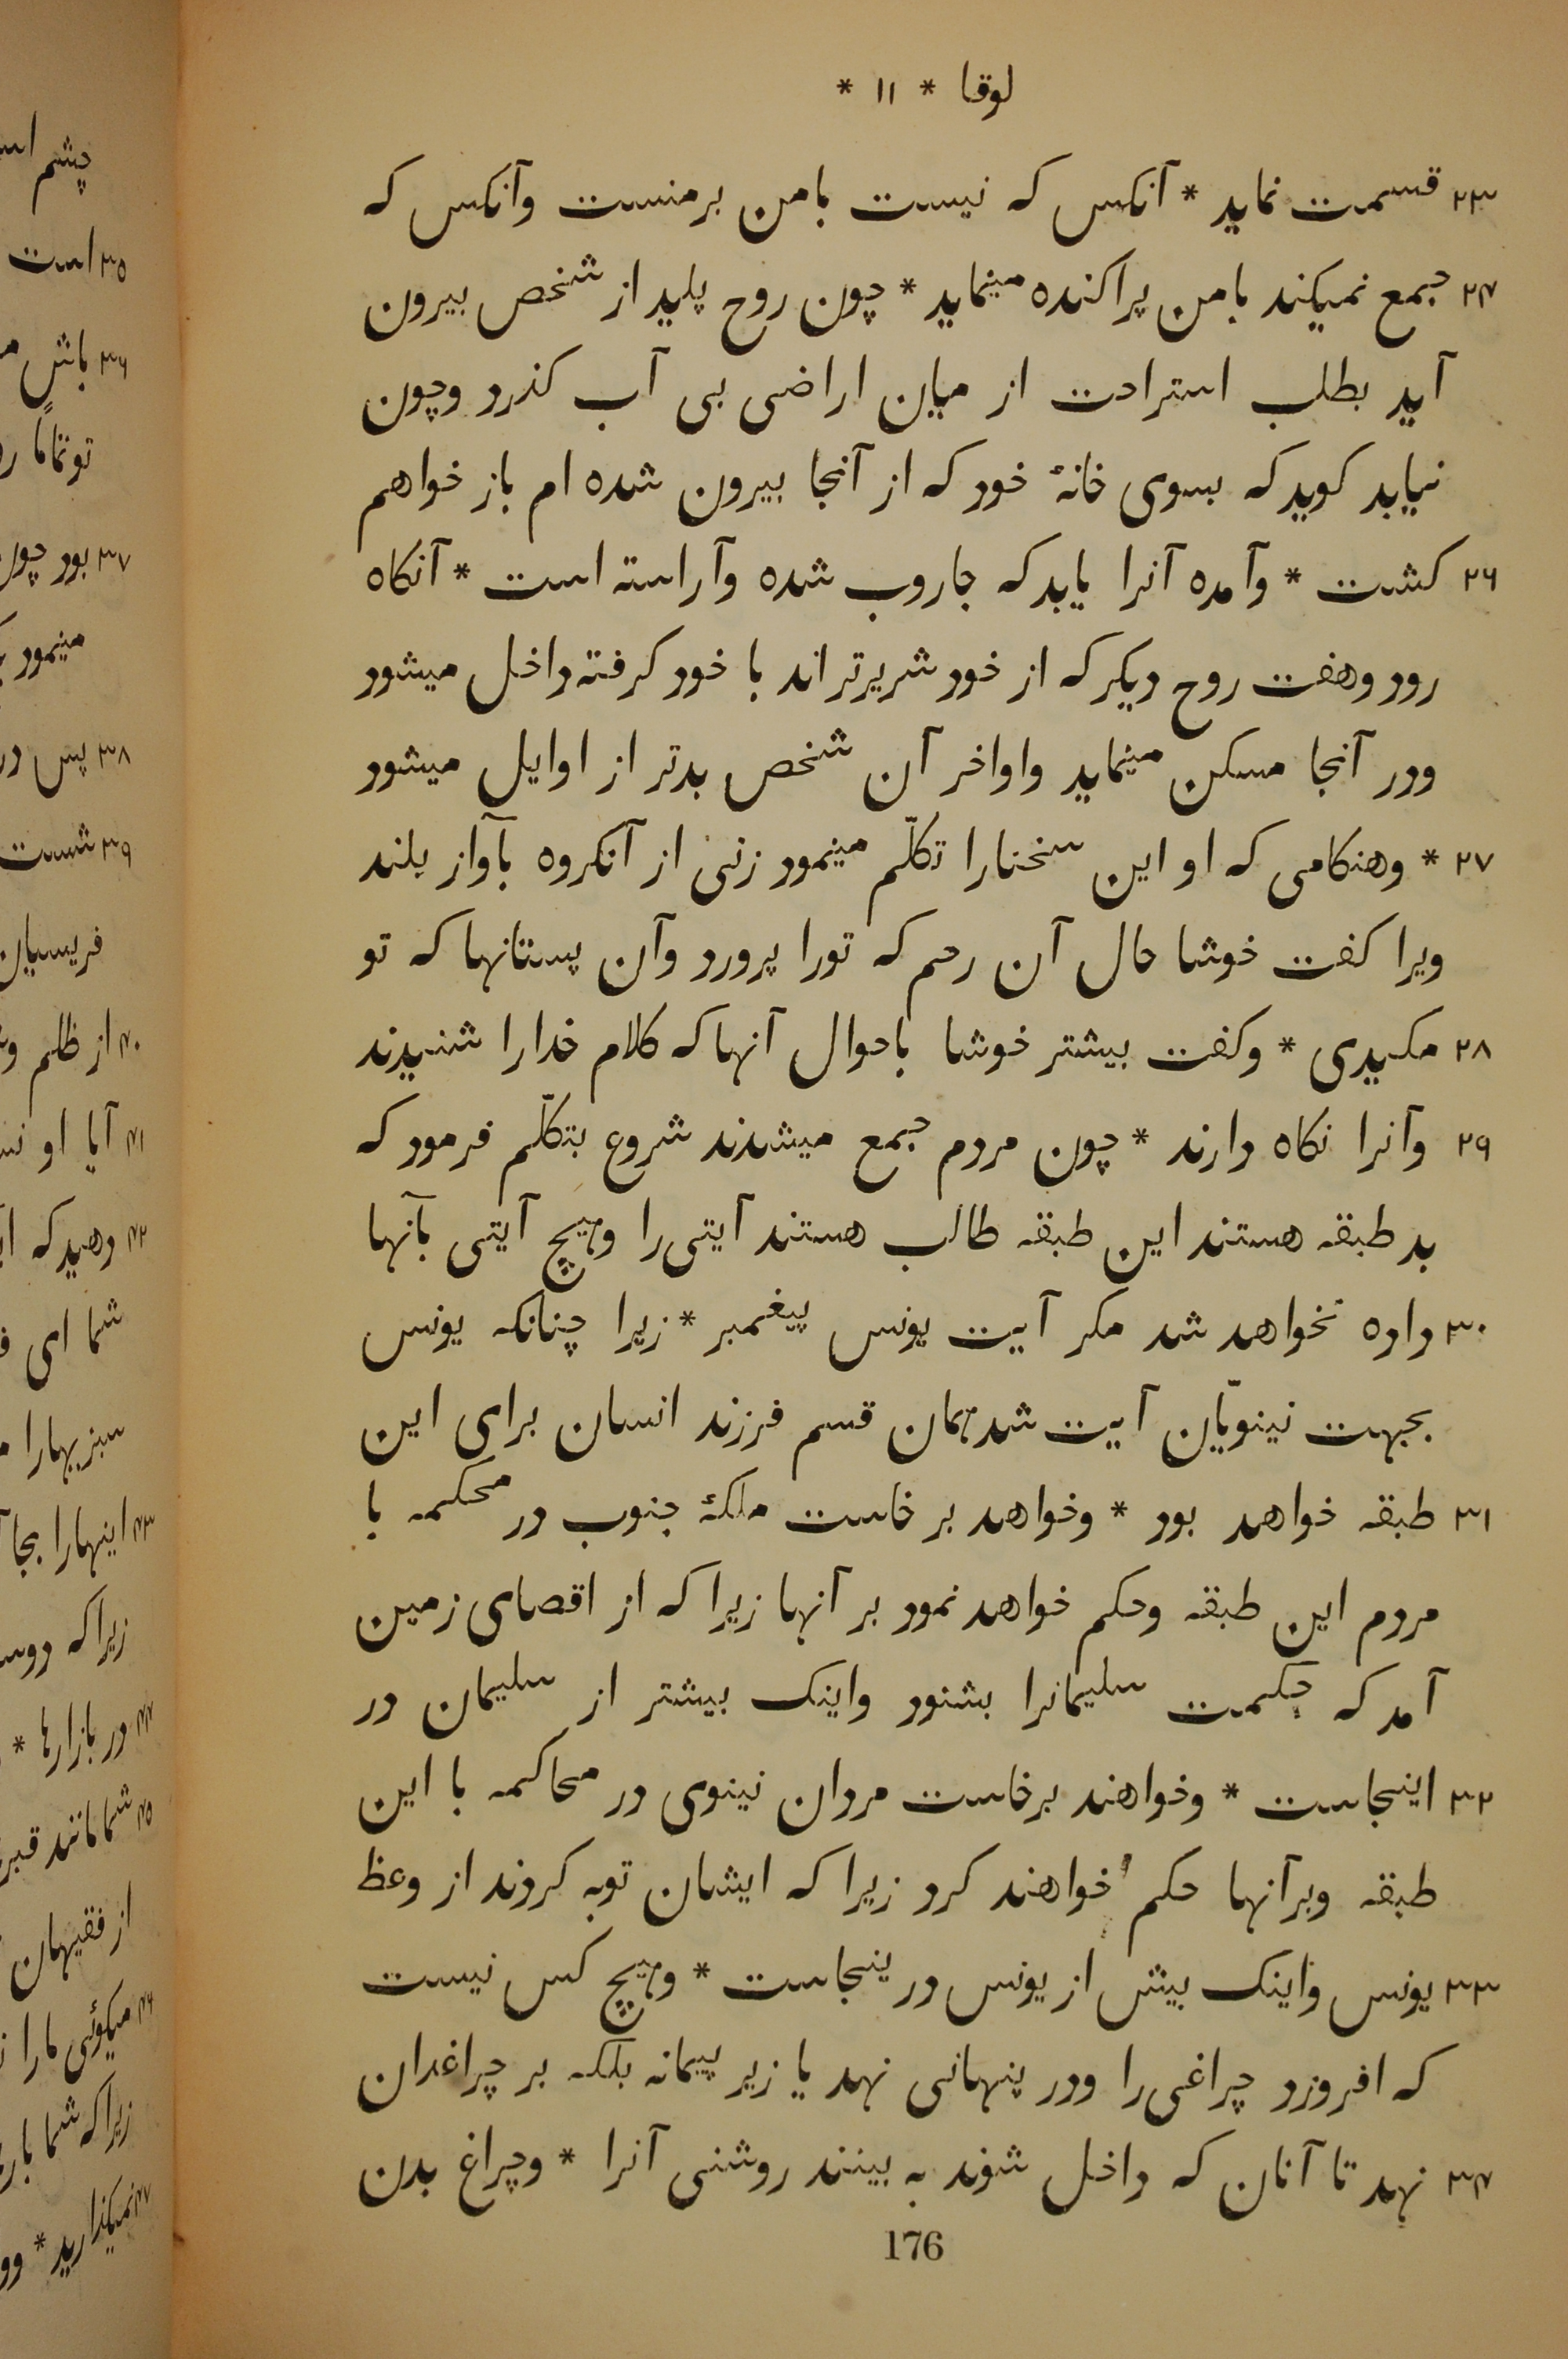 لوقا * ١١ *
٢٣ قسمت نماید * آنکس که نیست بامن برمنست وآنکس که
٢٤ جمع نمیکند بامن پراکنده مینماید * چون روح پلید از شخص بیرون
آید بطلب استراحت از میان اراضی بی آب کذرد وچون
نیابد کوید که بسوی خانهٔ خود که از آنجا بیرون شده ام باز خواهم
٢٦ کشت * وآمده آنرا یابد که جاروب شده وآراسته است * آنکاه
رود وهفت روح دیکر که از خود شریرتر اند با خود کرفته داخل میشود
ودر آنجا مسکن مینماید واواخر آن شخص بدتر از اوایل میشود
٢٧ * وهنکامی که او این سخنانرا تکلّم مینمود زنی از آنکروه بآواز بلند
ویرا کفت خوشا حال آن رحم که تورا پرورد وآن پستانها که تو
٢٨ مکیدی * وکفت بیشتر خوشا باحوال آنها که کلام خدارا شنیدند
٢٩ وآنرا نکاه دارند * چون مردم جمع میشدند شروع بتکلّم فرمود که
بد طبقه هستند این طبقه طالب هستند آیتی را وهیچ آیتی بآنها
٣٠ داده نخواهد شد مکر آیت یونس پیغمبر * زیرا چنانکه یونس
بجهت نینویّان آیت شد همان قسم فرزند انسان برای این
٣١ طبقه خواهد بود * وخواهد بر خاست ملکهٔ جنوب در محکمه با
مردم این طبقه وحکم خواهد نمود بر آنها زیرا که از اقصای زمین
آمد که حکمت سلیمانرا بشنود واینک بیشتر از سلیمان در
٣٢ اینجاست * وخواهند برخاست مردان نینوی در محاکمه با این
طبقه وبرآنها حکم خواهند کرد زیرا که ایشان توبه کردند از وعظ
٣٣ یونس واینک بیش از یونس در ینجاست * وهیچ کس نیست
که افروزد چراغی را ودر پنهانی نهد یا زیر پیمانه بلکه بر چراغدان
٣٤ نهد تا آنان که داخل شوند به بینند روشنی آنرا * وچراغ بدن
176